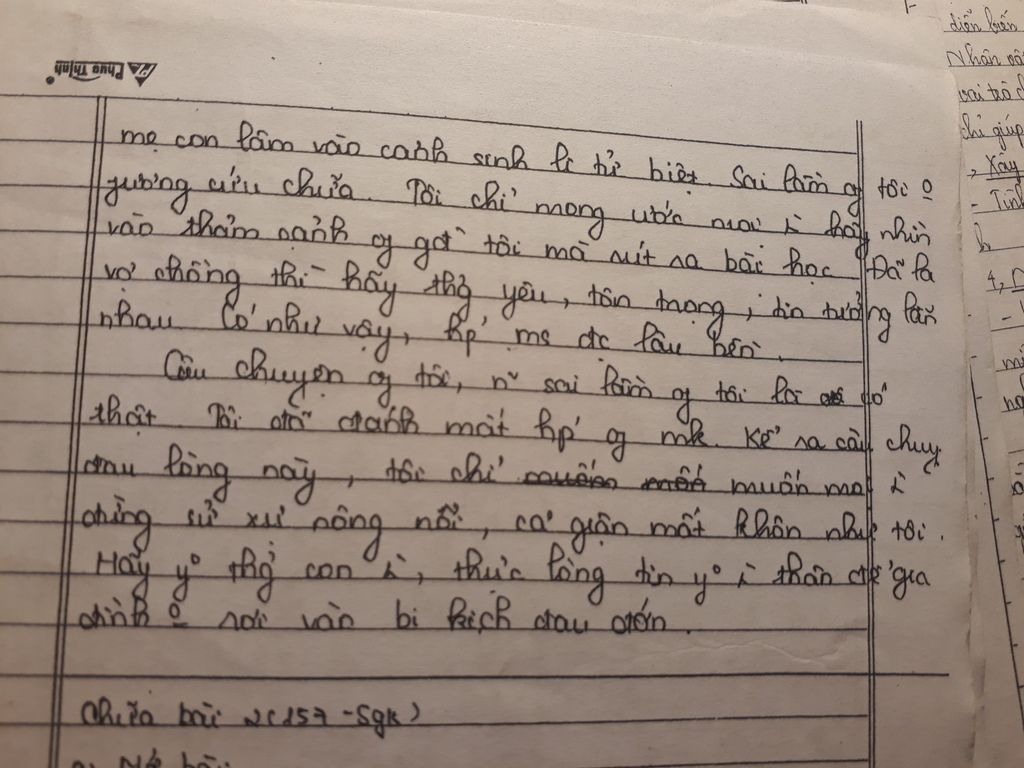 Phúc Thịnh
mẹ con lâm vào cảnh sinh li tử biệt. Sai lầm of tôi o
gương cứu chữa. Tôi chỉ mong ước mọi hãy nhìn
vào thảm cảnh of gđ tôi mà rút ra bài học. Đã là
vợ chồng thì hãy thg yêu, tôn trọng, tin tưởng lẫn
nhau. Có như vậy, hp' ms đc lâu bền.
Câu chuyện of tôi, n~ sai lầm of tôi là có
thật. Tôi đã đánh mất hp' of mk. Kể ra câu chuy
đau lòng này, tôi chỉ muốn mọi
đừng sử xự nông nổi, cả giận mất khôn như tôi.
Hãy yo thg con, thực lòng tin yo thân để gia
đình o rơi vào bi kịch đau đớn.
Chữa bài 2(157-Sgk)
diễn biến
Nhân vật
vai trò
chỉ giúp
, Xây
- Tính